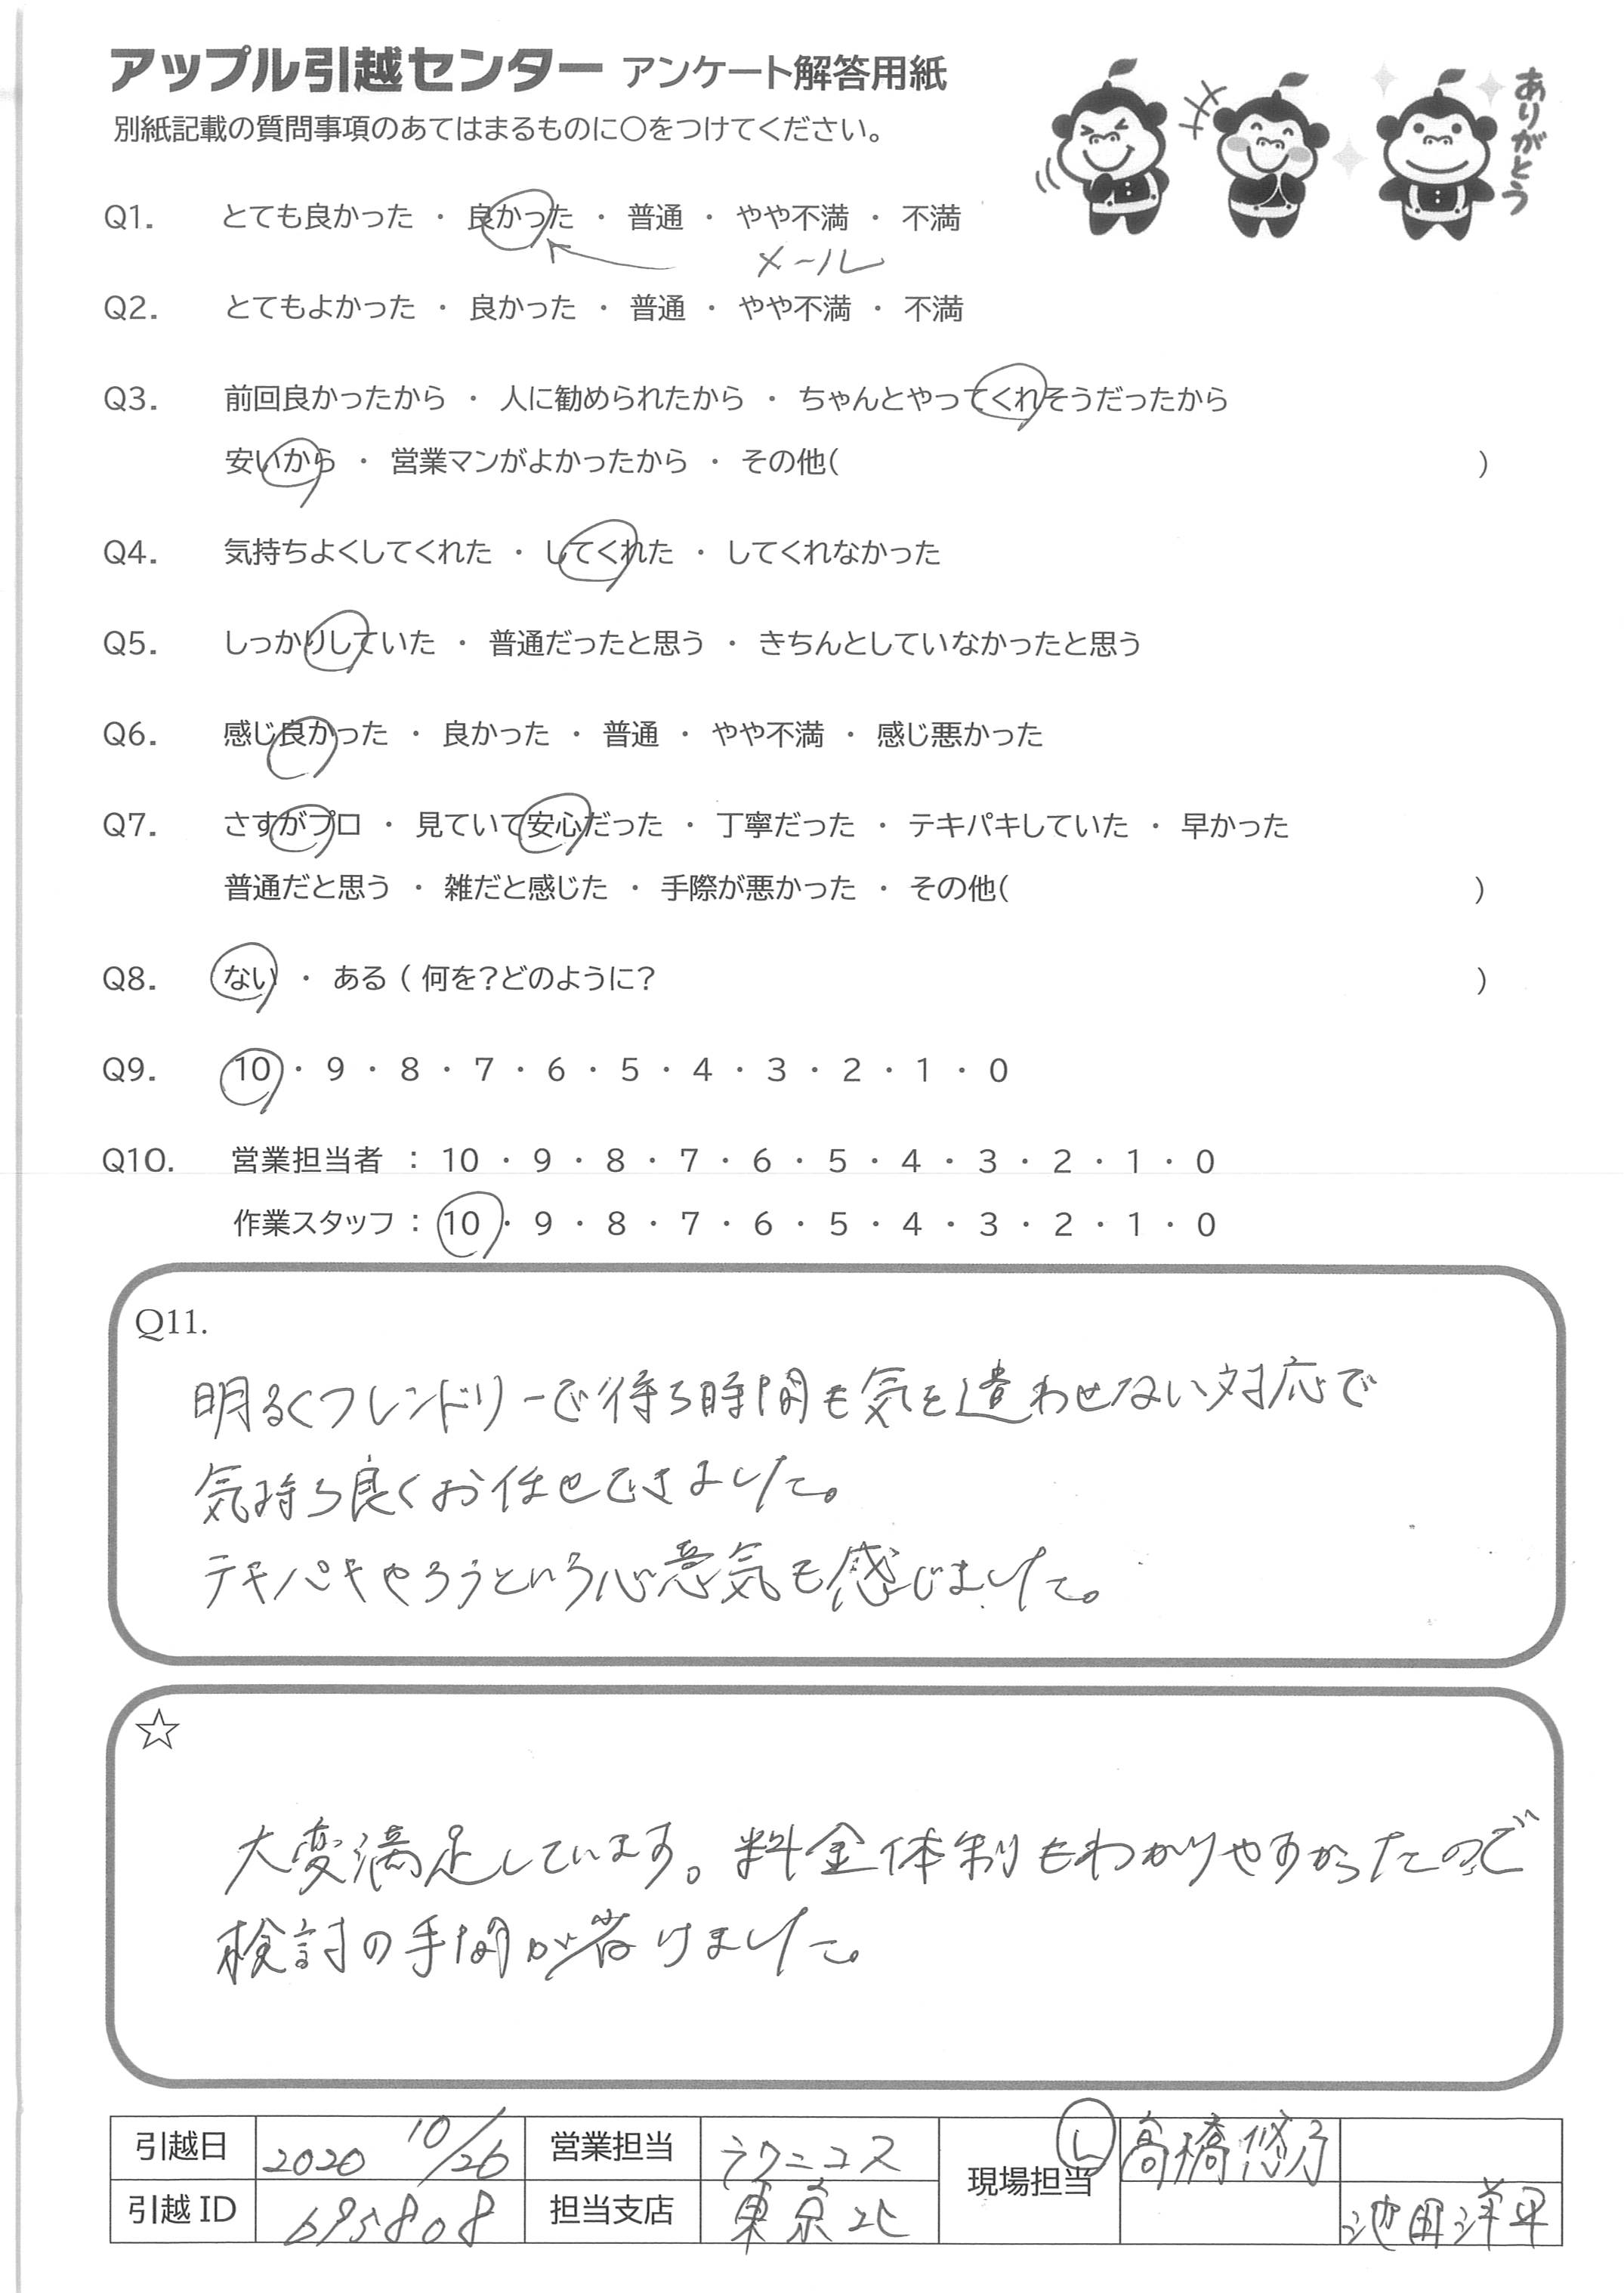 アップル引越センター アンケート解答用紙
別紙記載の質問事項のあてはまるものに○をつけてください。
ありがとう
Q1. とても良かった ・ 良かった ・ 普通 ・ やや不満 ・ 不満
メール
Q2. とてもよかった ・ 良かった ・ 普通 ・ やや不満 ・ 不満
Q3. 前回良かったから ・ 人に勧められたから ・ ちゃんとやってくれそうだったから
安いから ・ 営業マンがよかったから ・ その他( )
Q4. 気持ちよくしてくれた ・ してくれた ・ してくれなかった
Q5. しっかりしていた ・ 普通だったと思う ・ きちんとしていなかったと思う
Q6. 感じ良かった ・ 良かった ・ 普通 ・ やや不満 ・ 感じ悪かった
Q7. さすがプロ ・ 見ていて安心だった ・ 丁寧だった ・ テキパキしていた ・ 早かった
普通だと思う ・ 雑だと感じた ・ 手際が悪かった ・ その他( )
Q8. ない ・ ある ( 何を?どのように? )
Q9. 10 ・ 9 ・ 8 ・ 7 ・ 6 ・ 5 ・ 4 ・ 3 ・ 2 ・ 1 ・ 0
Q10. 営業担当者 : 10 ・ 9 ・ 8 ・ 7 ・ 6 ・ 5 ・ 4 ・ 3 ・ 2 ・ 1 ・ 0
作業スタッフ : 10 ・ 9 ・ 8 ・ 7 ・ 6 ・ 5 ・ 4 ・ 3 ・ 2 ・ 1 ・ 0
Q11.
明るくフレンドリーで待ち時間も気を遣わせない対応で
気持ち良くお任せできました。
テキパキやろうという心意気も感じました。
☆
大変満足しています。料金体制もわかりやすかったので
検討の手間が省けました。
引越日 2020 10/26 営業担当 ラクニコス 現場担当 L 高橋悠乃
引越ID 695808 担当支店 東京北 池田洋平